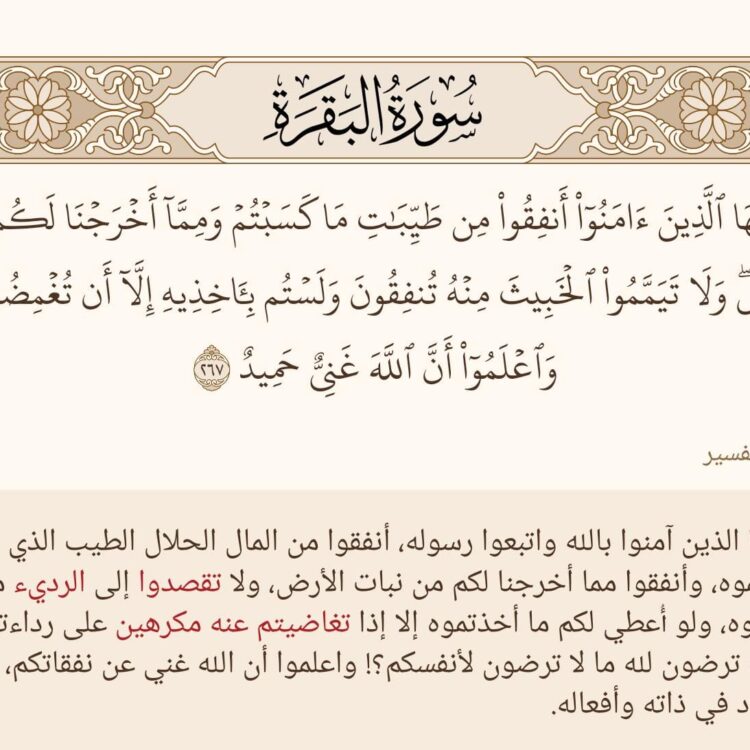 سُورَةُ البَقَرَةِ
ٱلَّذِينَ ءَامَنُوٓا۟ أَنفِقُوا۟ مِن طَيِّبَٰتِ مَا كَسَبْتُمْ وَمِمَّآ أَخْرَجْنَا لَكُم
وَلَا تَيَمَّمُوا۟ ٱلْخَبِيثَ مِنْهُ تُنفِقُونَ وَلَسْتُم بِـَٔاخِذِيهِ إِلَّآ أَن تُغْمِضُ
وَٱعْلَمُوٓا۟ أَنَّ ٱللَّهَ غَنِىٌّ حَمِيدٌ ٢٦٧
فسير
الذين آمنوا بالله واتبعوا رسوله، أنفقوا من المال الحلال الطيب الذي
موه، وأنفقوا مما أخرجنا لكم من نبات الأرض، ولا تقصدوا إلى الرديء
وه، ولو أُعطي لكم ما أخذتموه إلا إذا تغاضيتم عنه مكرهين على رداءته
ترضون لله ما لا ترضون لأنفسكم؟! واعلموا أن الله غني عن نفقاتكم،
د في ذاته وأفعاله.